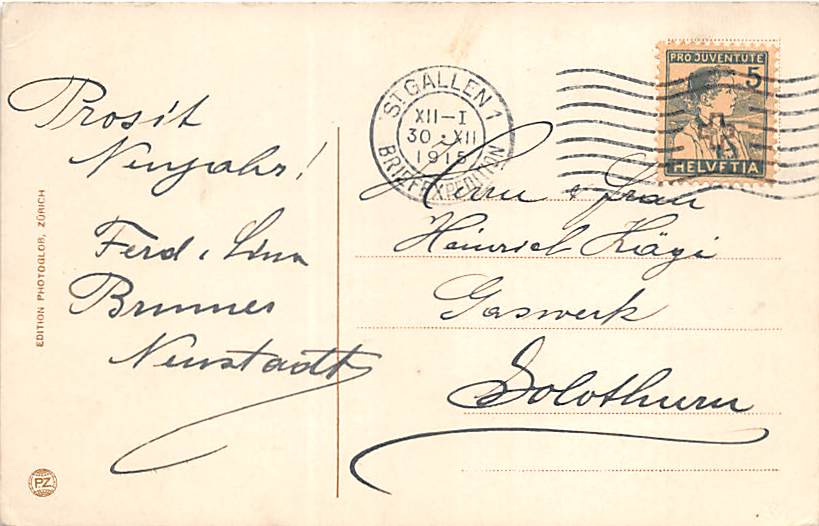 Prosit
Neujahr!
Ferd. & Lina
Brunner
Neustadt
EDITION PHOTOGLOB, ZÜRICH
PZ
ST. GALLEN 1
XII–I
30. XII
1915
BRIEFEXPEDITION
PRO JUVENTUTE
5
HELVETIA
Herrn & Frau
Heinrich Kägi
Gaswerk
Solothurn